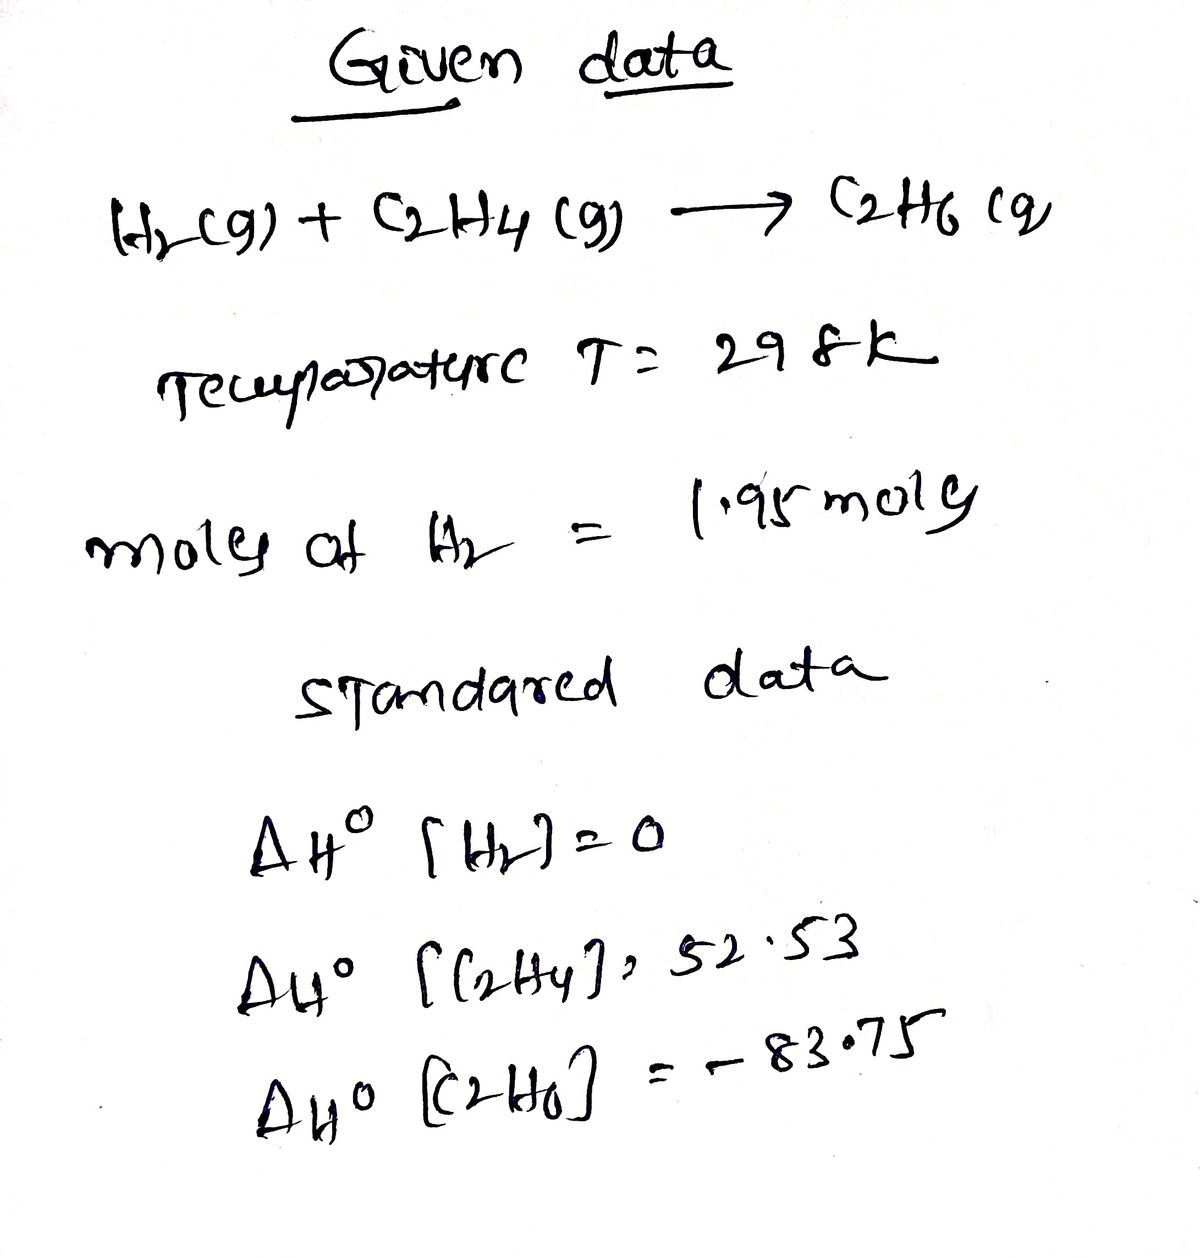 Given data
H2(g) + C2H4 (g) → C2H6 (g
Temparature T = 298k
moles of H2 = 1.95 moles
standared data
ΔH° [H2] = 0
ΔH° [C2H4] = 52.53
ΔH° [C2H6] = - 83.75